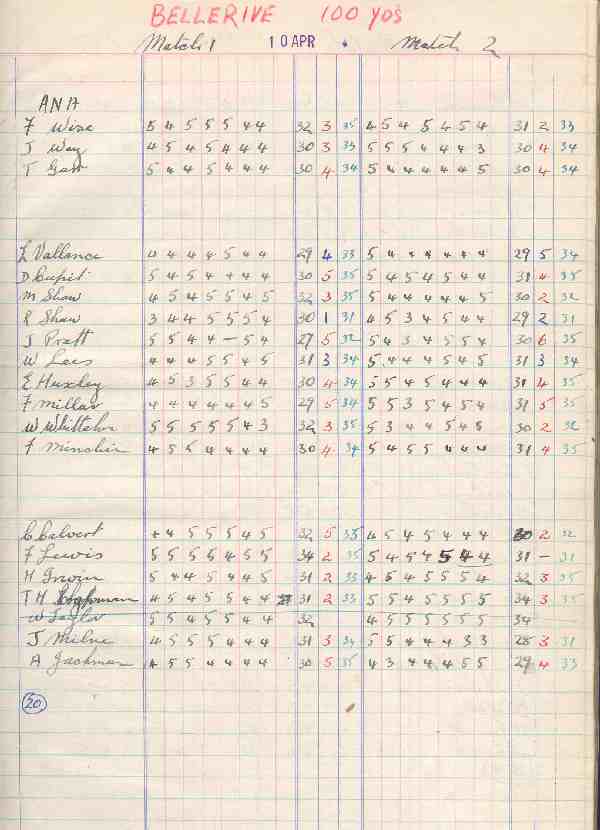 BELLERIVE 100 YDS
Match 1 10 APR Match 2
ANA
F Wise 5 4 5 5 5 4 4 32 3 35 4 5 4 5 4 5 4 31 2 33
J Way 4 5 4 5 4 4 4 30 3 33 5 5 5 4 4 4 3 30 4 34
T Garr 5 4 4 5 4 4 4 30 4 34 5 4 4 4 4 4 5 30 4 34
L Vallance 4 4 4 4 5 4 4 29 4 33 5 4 4 4 4 4 4 29 5 34
D Cupit 5 4 5 4 4 4 4 30 5 35 5 4 5 4 5 4 4 31 4 35
M Shaw 4 5 4 5 5 4 5 32 3 35 5 4 4 4 4 4 5 30 2 32
R Shaw 3 4 4 5 5 5 4 30 1 31 4 5 3 4 5 4 4 29 2 31
J Pratt 5 5 4 4 – 5 4 27 5 32 5 4 3 4 5 5 4 30 6 35
W Lees 4 4 4 5 5 4 5 31 3 34 5 4 4 4 5 4 5 31 3 34
E Huxley 4 5 3 5 5 4 4 30 4 34 5 5 4 5 4 4 4 31 4 35
F Millar 4 4 4 4 4 4 5 29 5 34 5 5 3 5 4 5 4 31 5 35
W Whitteker 5 5 5 5 5 4 3 32 3 35 5 3 4 4 5 4 5 30 2 32
F Minchin 4 5 5 4 4 4 4 30 4 34 5 4 5 5 4 4 4 31 4 35
C Calvert 4 4 5 5 5 4 5 32 5 35 4 5 4 5 4 4 4 30 2 32
F Lewis 5 5 5 5 4 5 5 34 2 35 5 4 5 4 5 4 4 31 – 31
H Irwin 5 4 4 5 4 4 5 31 2 33 4 5 4 5 5 5 4 32 3 35
T H 4 5 4 5 5 4 4 31 2 33 5 5 4 5 5 5 5 34 3 35
W Taylor 5 5 4 5 5 4 4 32 4 5 5 5 5 5 5 34
J Milne 4 5 5 5 4 4 4 31 3 34 5 5 4 4 4 3 3 28 3 31
A Jackman 4 5 5 4 4 4 4 30 5 35 4 3 4 4 4 5 5 29 4 33
20